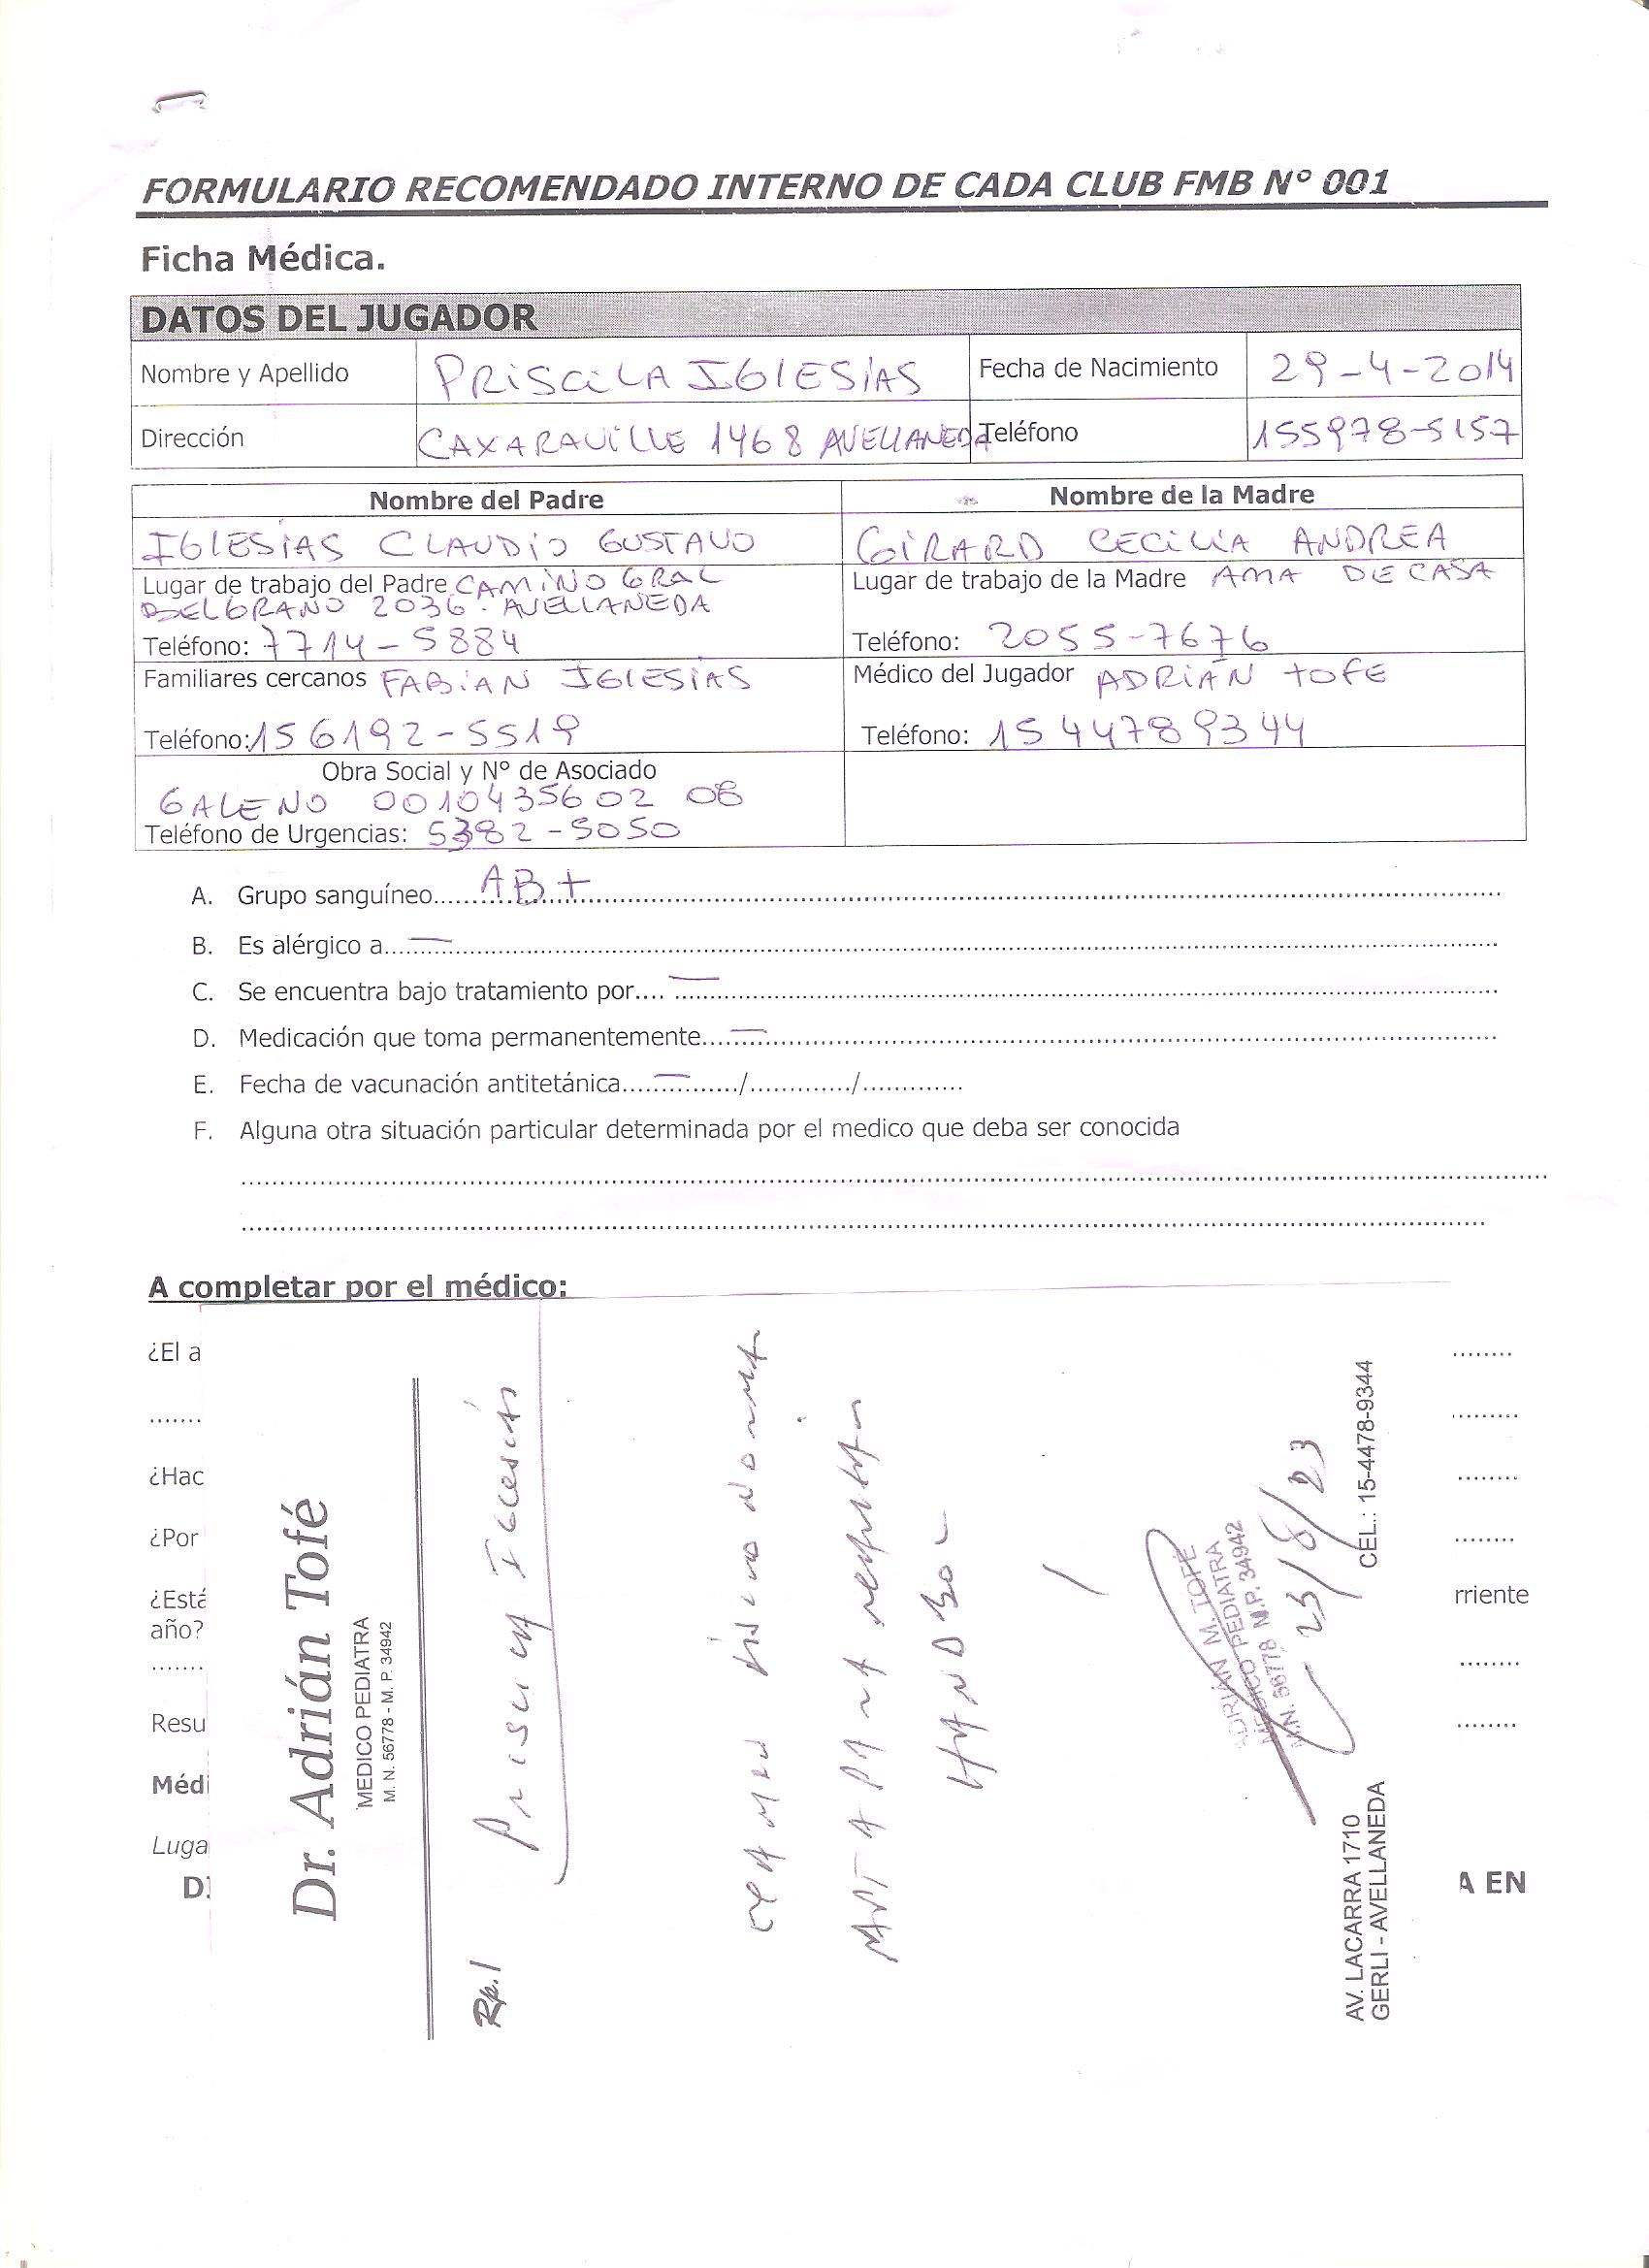 FORMULARIO RECOMENDADO INTERNO DE CADA CLUB FMB N° 001
Ficha Médica.
DATOS DEL JUGADOR
Nombre y Apellido PRISCILA IGLESIAS Fecha de Nacimiento 29-4-2014
Dirección CAXARAVILLE 1468 AVELLANEDA Teléfono 155978-5157
Nombre del Padre Nombre de la Madre
IGLESIAS CLAUDIO GUSTAVO GIRARD CECILIA ANDREA
Lugar de trabajo del Padre CAMINO GRAL Lugar de trabajo de la Madre AMA DE CASA
BELGRANO 2036. AVELLANEDA
Teléfono: 7714-5884 Teléfono: 2055-7676
Familiares cercanos FABIAN IGLESIAS Médico del Jugador ADRIÁN TOFE
Teléfono: 156192-5519 Teléfono: 1544789344
Obra Social y N° de Asociado
GALENO 0010435602 08
Teléfono de Urgencias: 5382-5050
A. Grupo sanguíneo.......AB+.......
B. Es alérgico a....—.......
C. Se encuentra bajo tratamiento por.... —.......
D. Medicación que toma permanentemente....—.......
E. Fecha de vacunación antitetánica....—....../............/.............
F. Alguna otra situación particular determinada por el medico que deba ser conocida
A completar por el médico:
¿El a
¿Hac
¿Por
¿Está rriente
año?
Resu
Médi
Luga
D. A EN
Dr. Adrián Tofé
MEDICO PEDIATRA
M. N. 56778 - M. P. 34942
Rp./ Iglesias
HANDBOL
ADRIÁN M. TOFÉ
MEDICO PEDIATRA
M.N. 56778 M.P. 34942
23/8/23
AV. LACARRA 1710 CEL.: 15-4478-9344
GERLI - AVELLANEDA